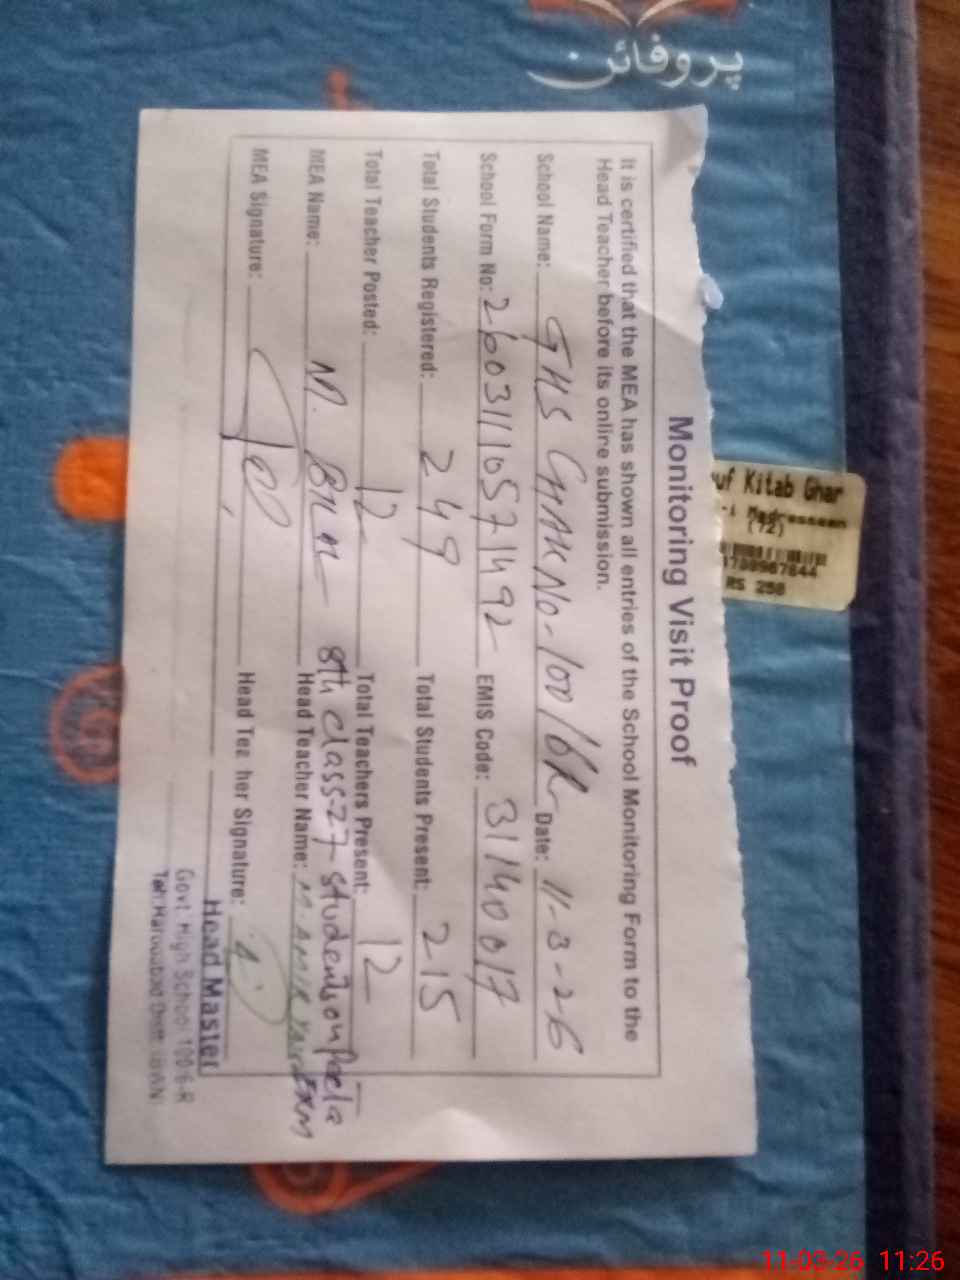 پروفائن
Monitoring Visit Proof
It is certified that the MEA has shown all entries of the School Monitoring Form to the
Head Teacher before its online submission.
School Name: GHS CHAK No-100/6R Date: 11-3-26
School Form No: 26031110571492 EMIS Code: 31140017
Total Students Registered: 249 Total Students Present: 215
Total Teacher Posted: 12 Total Teachers Present: 12
8th class-27-students on Pecta Exam
MEA Name: M. BILAL Head Teacher Name: M. AMIR
MEA Signature: Head Teacher Signature:
Head Master
Govt. High School 100-6-R
Teh. Haroonabad Distt.
Kitab Ghar
(72)
RS 250
11-03-26 11:26